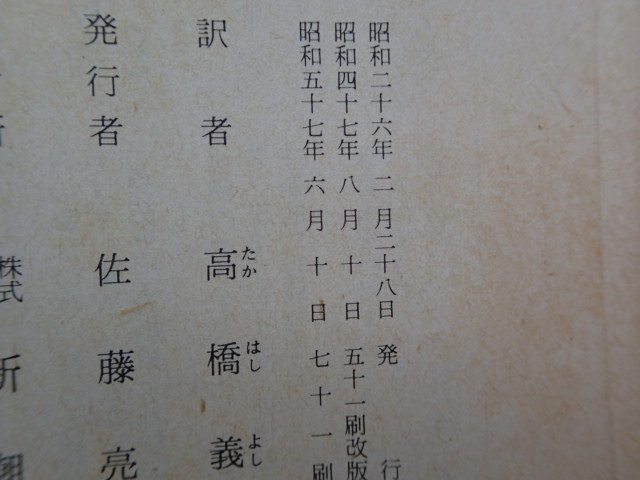 昭和二十六年二月二十八日発行
昭和四十七年八月十日五十一刷改版
昭和五十七年六月十日七十一刷
訳者 高橋義
たかはしよし
発行者 佐藤亮
株式